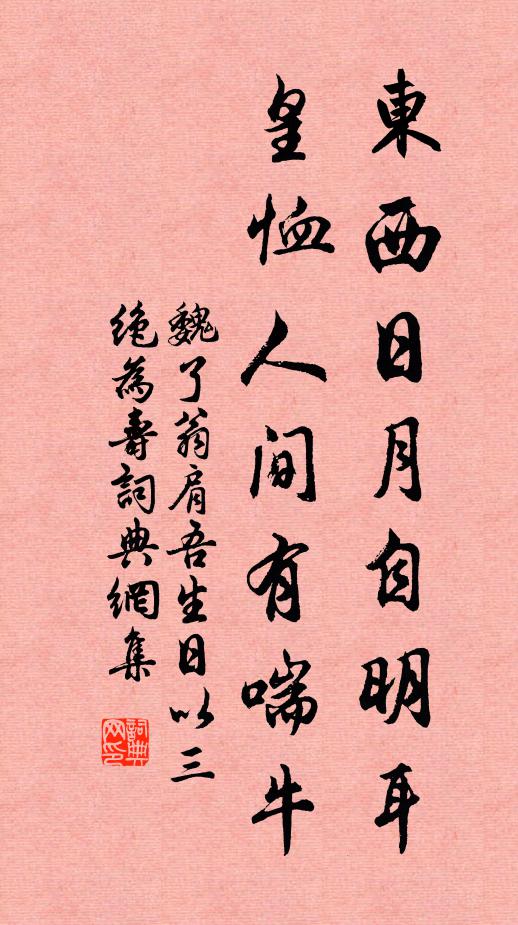 東西日月自明耳
皇恤人間有喘牛
魏了翁肩吾生日以三
絶為壽詞典網集
詞典网印